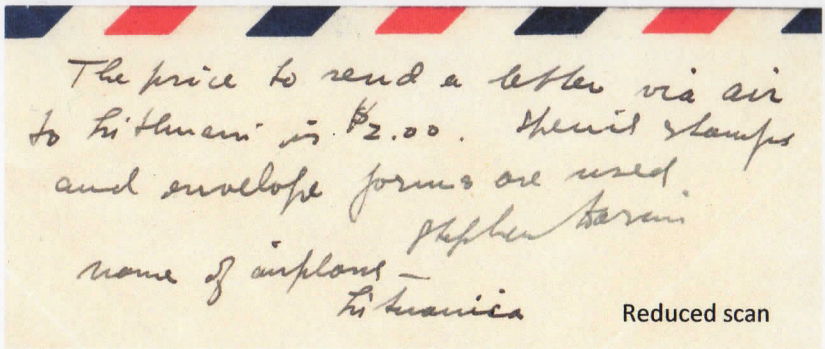 The price to send a letter via air
to Lithuani is $2.00. Special stamps
and envelope forms are used
Stephen Darius
name of airplane –
Lituanica
Reduced scan